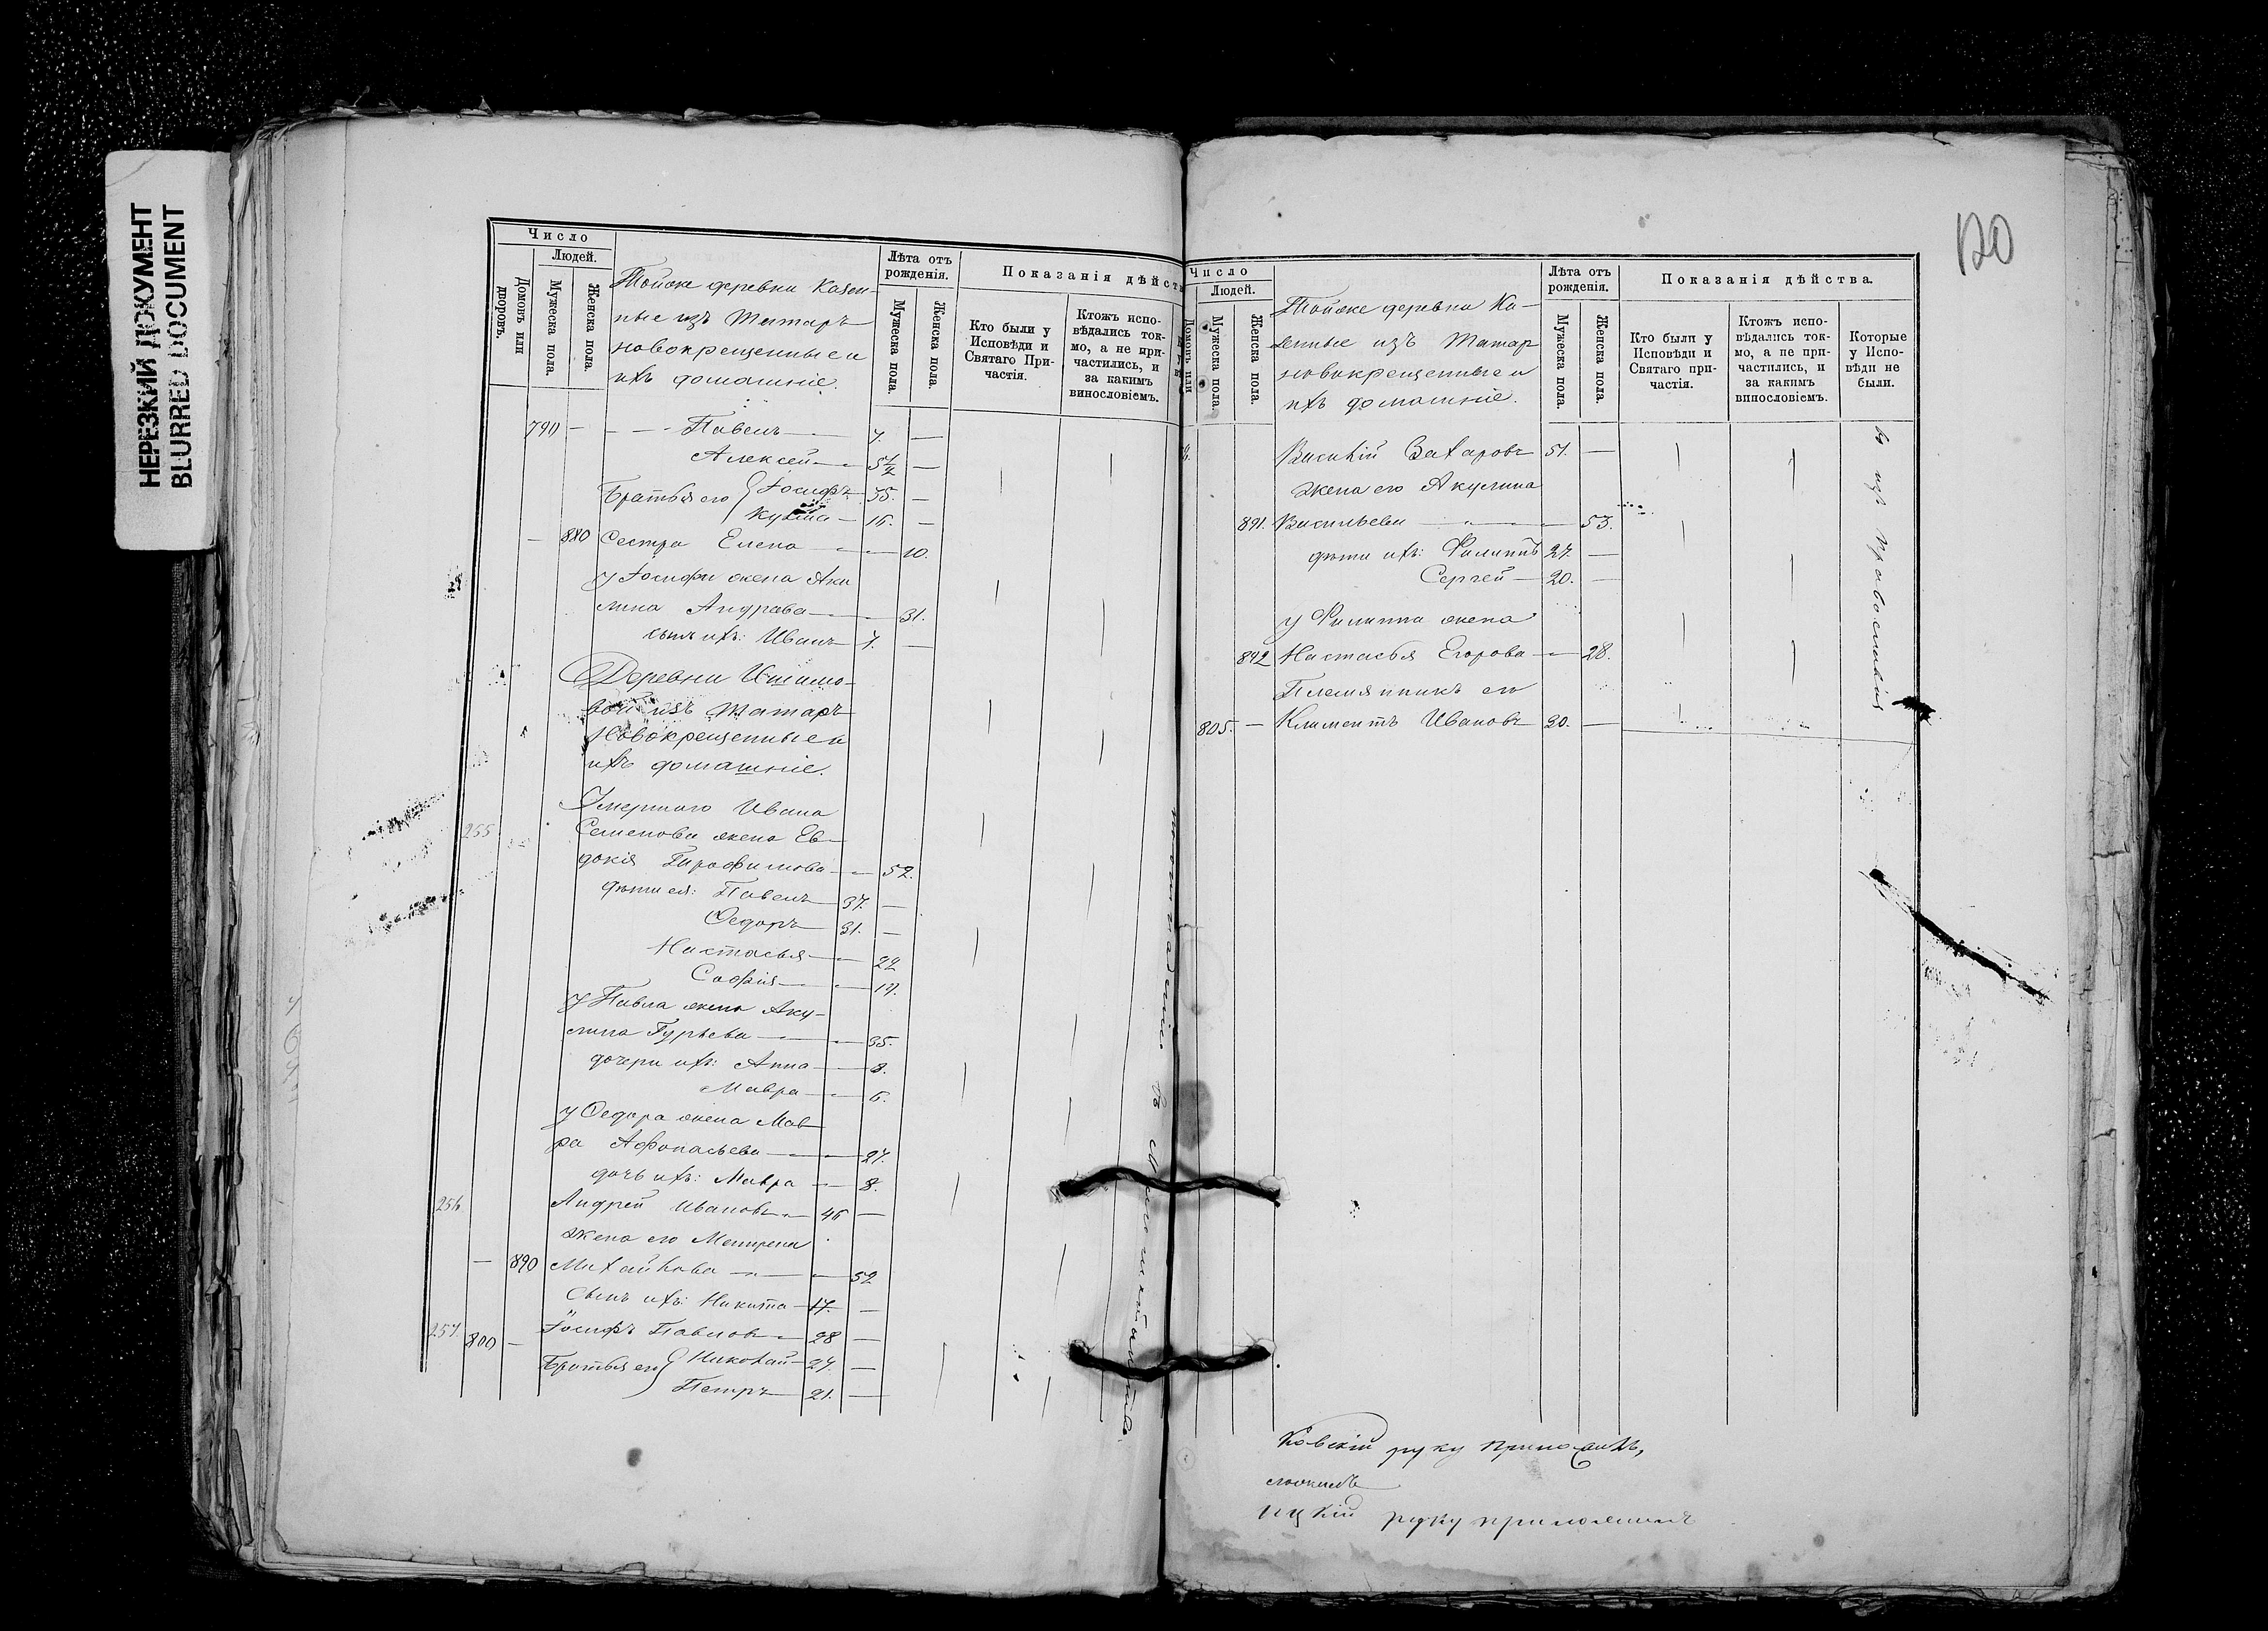 НЕРЕЗКИЙ ДОКУМЕНТ
BLURRED DOCUMENT
Число
Людей.
Домовъ или дворовъ.
Мужеска пола.
Женска пола.
Тойже деревни Казен-
ные изъ Татаръ
новокрещенные и
ихъ домашніе.
Лѣта отъ рожденія.
Мужеска пола.
Женска пола.
Показанія дѣйст
Кто были у Исповѣди и Святаго При-частія.
Ктожъ испо-вѣдались ток-мо, а не при-частились, и за какимъ винословіемъ.
790 — Павелъ 7. —
Алексей 5 1/2 —
Братья его Іосифъ 35. —
Кузьма 16. —
— 880 Сестра Елена — 10.
у Іосифа жена Аку
лина — 31.
сынъ ихъ: Иванъ 7. —
Деревни Ишимо-
вой изъ Татаръ
Новокрещенные и
ихъ домашніе.
Умершаго Ивана
255 Семенова жена Ев-
докія — 52.
дѣти ея: Павелъ 37. —
Ѳедоръ 31. —
Настасья — 22
Софія — 17.
у Павла жена Аку-
лина Гурьева — 35.
дочери ихъ: Анна — 8.
Мавра — 6.
у Ѳедора жена Мав
ра Афонасьева — 27.
дочь ихъ: Мавра — 8.
256. Андрей Ивановъ 46 —
жена его Матрена
— 890 Михайлова — 52
сынъ ихъ: Никита 17. —
257. 800 — Іосифъ Павловъ 28 —
Братья его Николай 24. —
Петръ 21. —
120
Число
Людей.
Домовъ или
Мужеска пола.
Женска пола.
Тойже деревни Ка-
зенные изъ Татар
новокрещенные и
ихъ домашніе.
Лѣта отъ рожденія.
Мужеска пола.
Женска пола.
Показанія дѣйства.
Кто были у Исповѣди и Святаго при-частія.
Ктожъ испо-вѣдались ток-мо, а не при-частились, и за какимъ винословіемъ.
Которые у Испо-вѣди не были.
Василій Захаровъ 51. —
жена его Акулина
891. Васильева — 53.
дѣти ихъ: Филиппъ 27. —
Сергей 20. —
у Филиппа жена
892 Настасья Егорова — 28.
Племянникъ его
805. — Климентъ Ивановъ 30. —
изъ Православія
ковскій руку приложилъ,
ицкій руку приложилъ